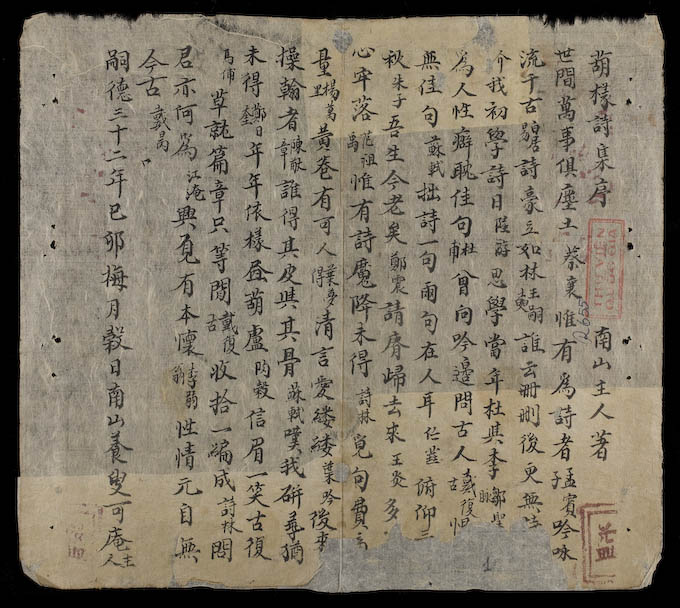 葫樣詩集序 南山主人著
世間萬事俱塵土 蔡襄 惟有為詩者 孟賓子 吟咏
流千古 詩豪立如林 王嗣奭 誰云刪後更無
介 我初學詩日 陸游 思學當年杜與李 鄒聖脉
為人性癖耽佳句 杜甫 曾向吟邊問古人 戴復古
無佳句 蘇軾 拙詩一句兩句在人耳 俯仰三
秋 朱子 吾生今老矣 鄭震 請賡歸去來 王炎 多
心牢落 范祖禹 惟有詩魔降未得 詩林 覓句費
量 楊萬里 黃卷有可人 葉夢得 清言愛縷縷 葉吟 後來
操翰者 陳猷章 誰得其皮與其骨 蘇軾 嘆我研尋猶
未得 鄭日奎 年年依樣畫葫蘆 信眉一笑古復
馬甫 草就篇章只等閒 戴復古 收拾一編成 詩林 閱
君亦何為 江淹 興有本懷 性情元自無
今古 戴昺
嗣德三十二年己卯梅月穀日南山養叟可庵主人
2655